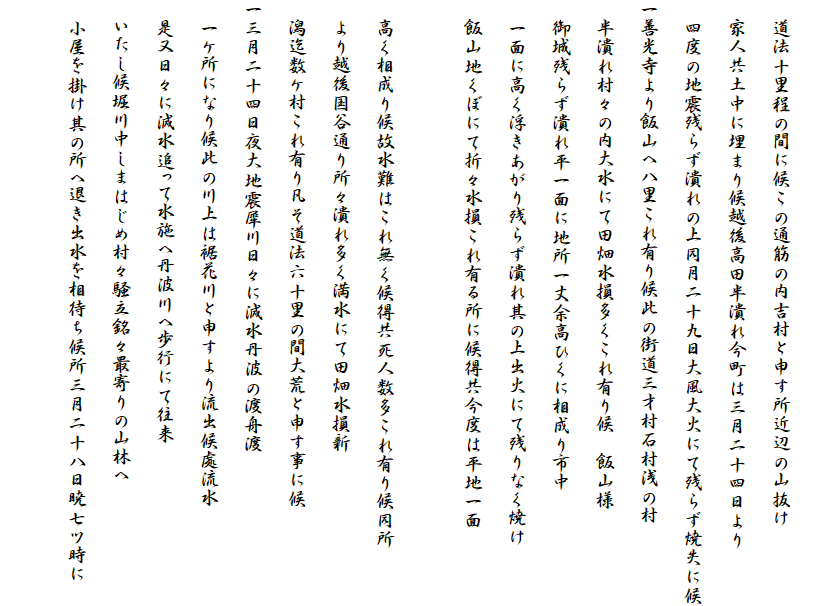 道法十里程の間に候この通筋の内吉村と申す所近辺の山抜け
家人共土中に埋まり候越後高田半潰れ今町は三月二十四日より
四度の地震残らず潰れの上同月二十九日大風大火にて残らず焼失に候
一善光寺より飯山へ八里これ有り候此の街道三才村石村浅の村
半潰れ村々の内大水にて田畑水損多くこれ有り候　飯山様
御城残らず潰れ平一面に地所一丈余高ひくに相成り市中
一面に高く浮きあがり残らず潰れ其の上出火にて残りなく焼け
飯山地くぼにて折々水損これ有る所に候得共今度は平地一面
高く相成り候故水難はこれ無く候得共死人数多これ有り候同所
より越後国谷通り所々潰れ多く満水にて田畑水損新
潟迄数ケ村これ有り凡そ道法六十里の間大荒と申す事に候
一三月二十四日夜大地震犀川日々に減水丹波の渡舟渡
一ケ所になり候此の川上は裾花川と申すより流出候處流水
是又日々に減水追って水施へ丹波川へ歩行にて往来
いたし候堀川申しまはじめ村々騒立銘々最寄りの山林へ
小屋を掛け其の所へ退き出水を相待ち候所三月二十八日暁七ツ時に